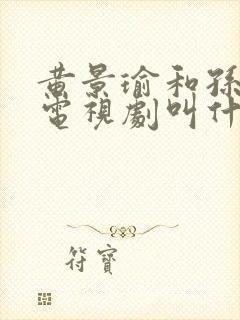 黄景瑜和孫
電視劇叫什
符寶